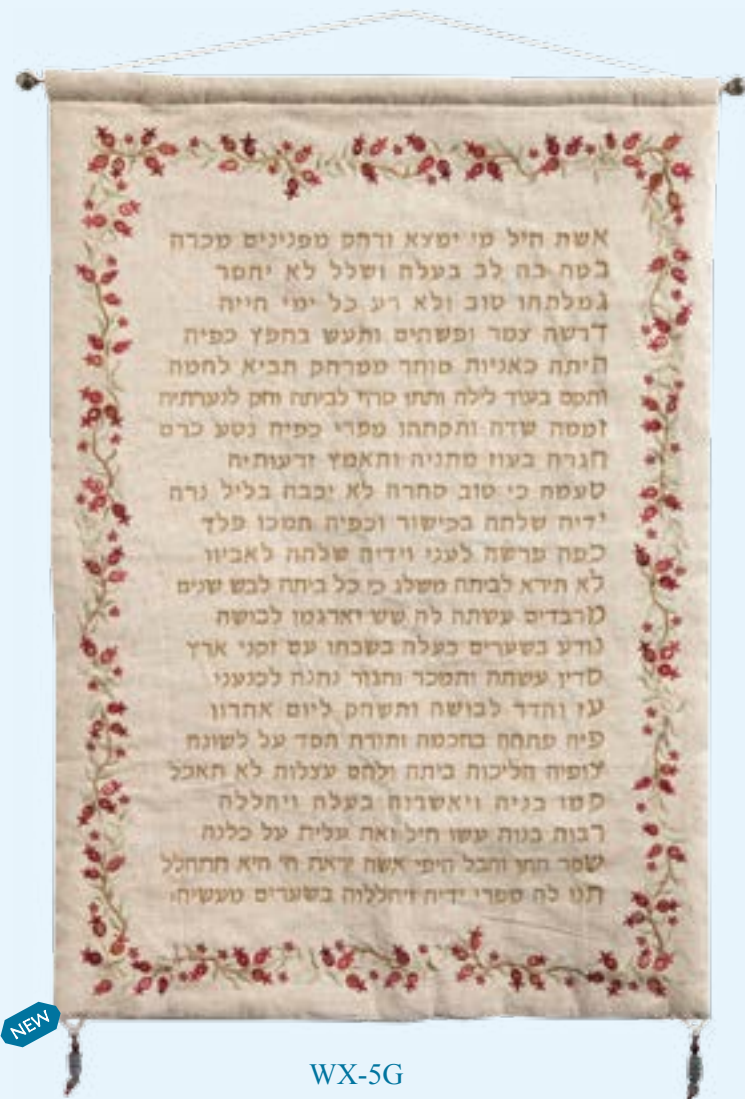 אשת חיל מי ימצא ורחק מפנינים מכרה
בטח בה לב בעלה ושלל לא יחסר
גמלתהו טוב ולא רע כל ימי חייה
דרשה צמר ופשתים ותעש בחפץ כפיה
היתה כאניות סוחר ממרחק תביא לחמה
ותקם בעוד לילה ותתן טרף לביתה וחק לנערתיה
זממה שדה ותקחהו מפרי כפיה נטע כרם
חגרה בעוז מתניה ותאמץ זרעותיה
טעמה כי טוב סחרה לא יכבה בליל נרה
ידיה שלחה בכישור וכפיה תמכו פלך
כפה פרשה לעני וידיה שלחה לאביון
לא תירא לביתה משלג כי כל ביתה לבש שנים
מרבדים עשתה לה שש וארגמן לבושה
נודע בשערים בעלה בשבתו עם זקני ארץ
סדין עשתה ותמכר וחגור נתנה לכנעני
עז והדר לבושה ותשחק ליום אחרון
פיה פתחה בחכמה ותורת חסד על לשונה
צופיה הליכות ביתה ולחם עצלות לא תאכל
קמו בניה ויאשרוה בעלה ויהללה
רבות בנות עשו חיל ואת עלית על כלנה
שקר החן והבל היפי אשה יראת ה' היא תתהלל
תנו לה מפרי ידיה ויהללוה בשערים מעשיה:
NEW
WX-5G